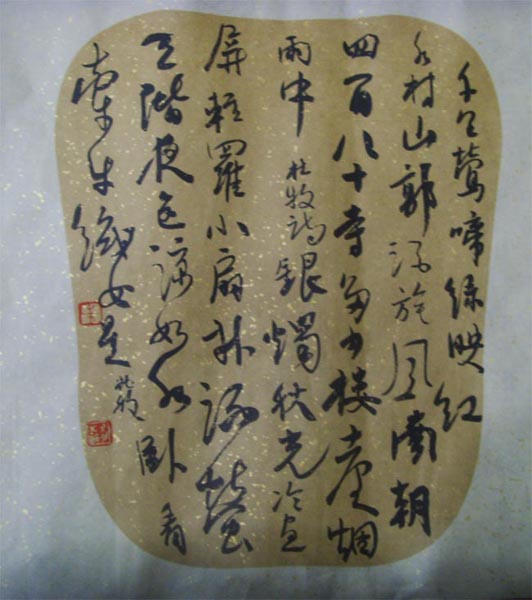 千里莺啼绿映红
水村山郭酒旗风南朝
四百八十寺多少楼台烟
雨中 杜牧诗银烛秋光冷画
屏轻罗小扇扑流萤
天阶夜色凉如水卧看
牵牛织女星